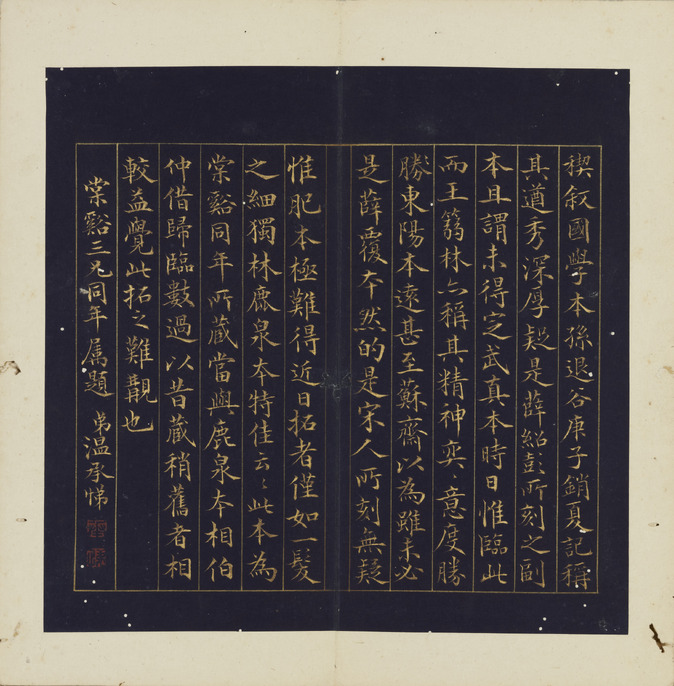 稧叙國學本孫退谷庚子銷夏記稱
其遒秀深厚疑是薛紹彭所刻之副
本且謂未得定武真本時日惟臨此
而王篛林亦稱其精神奕〻意度勝
勝東陽本遠甚至蘇齋以為雖未必
是薛覆本然的是宋人所刻無疑
惟肥本極難得近日拓者僅如一髮
之細獨林鹿泉本特佳云〻此本為
棠谿同年所藏當與鹿泉本相伯
仲借歸臨數過以昔藏稍舊者相
較益覺此拓之難覯也
棠谿三兄同年属題 弟溫承悌